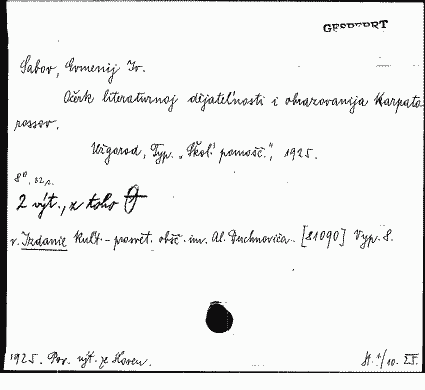 GESPERRT
Sabov, Evmenij Iv.
Očerk literaturnoj dějatel'nosti i obrazovanija Karpato-
rossov.
Užgorod, Typ. „Škol' pomošč.", 1925.
8°, 32 s.
2 výt., z toho
v. Izdanie Kult. - prosvět. obšč. im. Al. Duchnoviča. [81090] Vyp. 8.
1925. Pov. výt. ze Sloven.